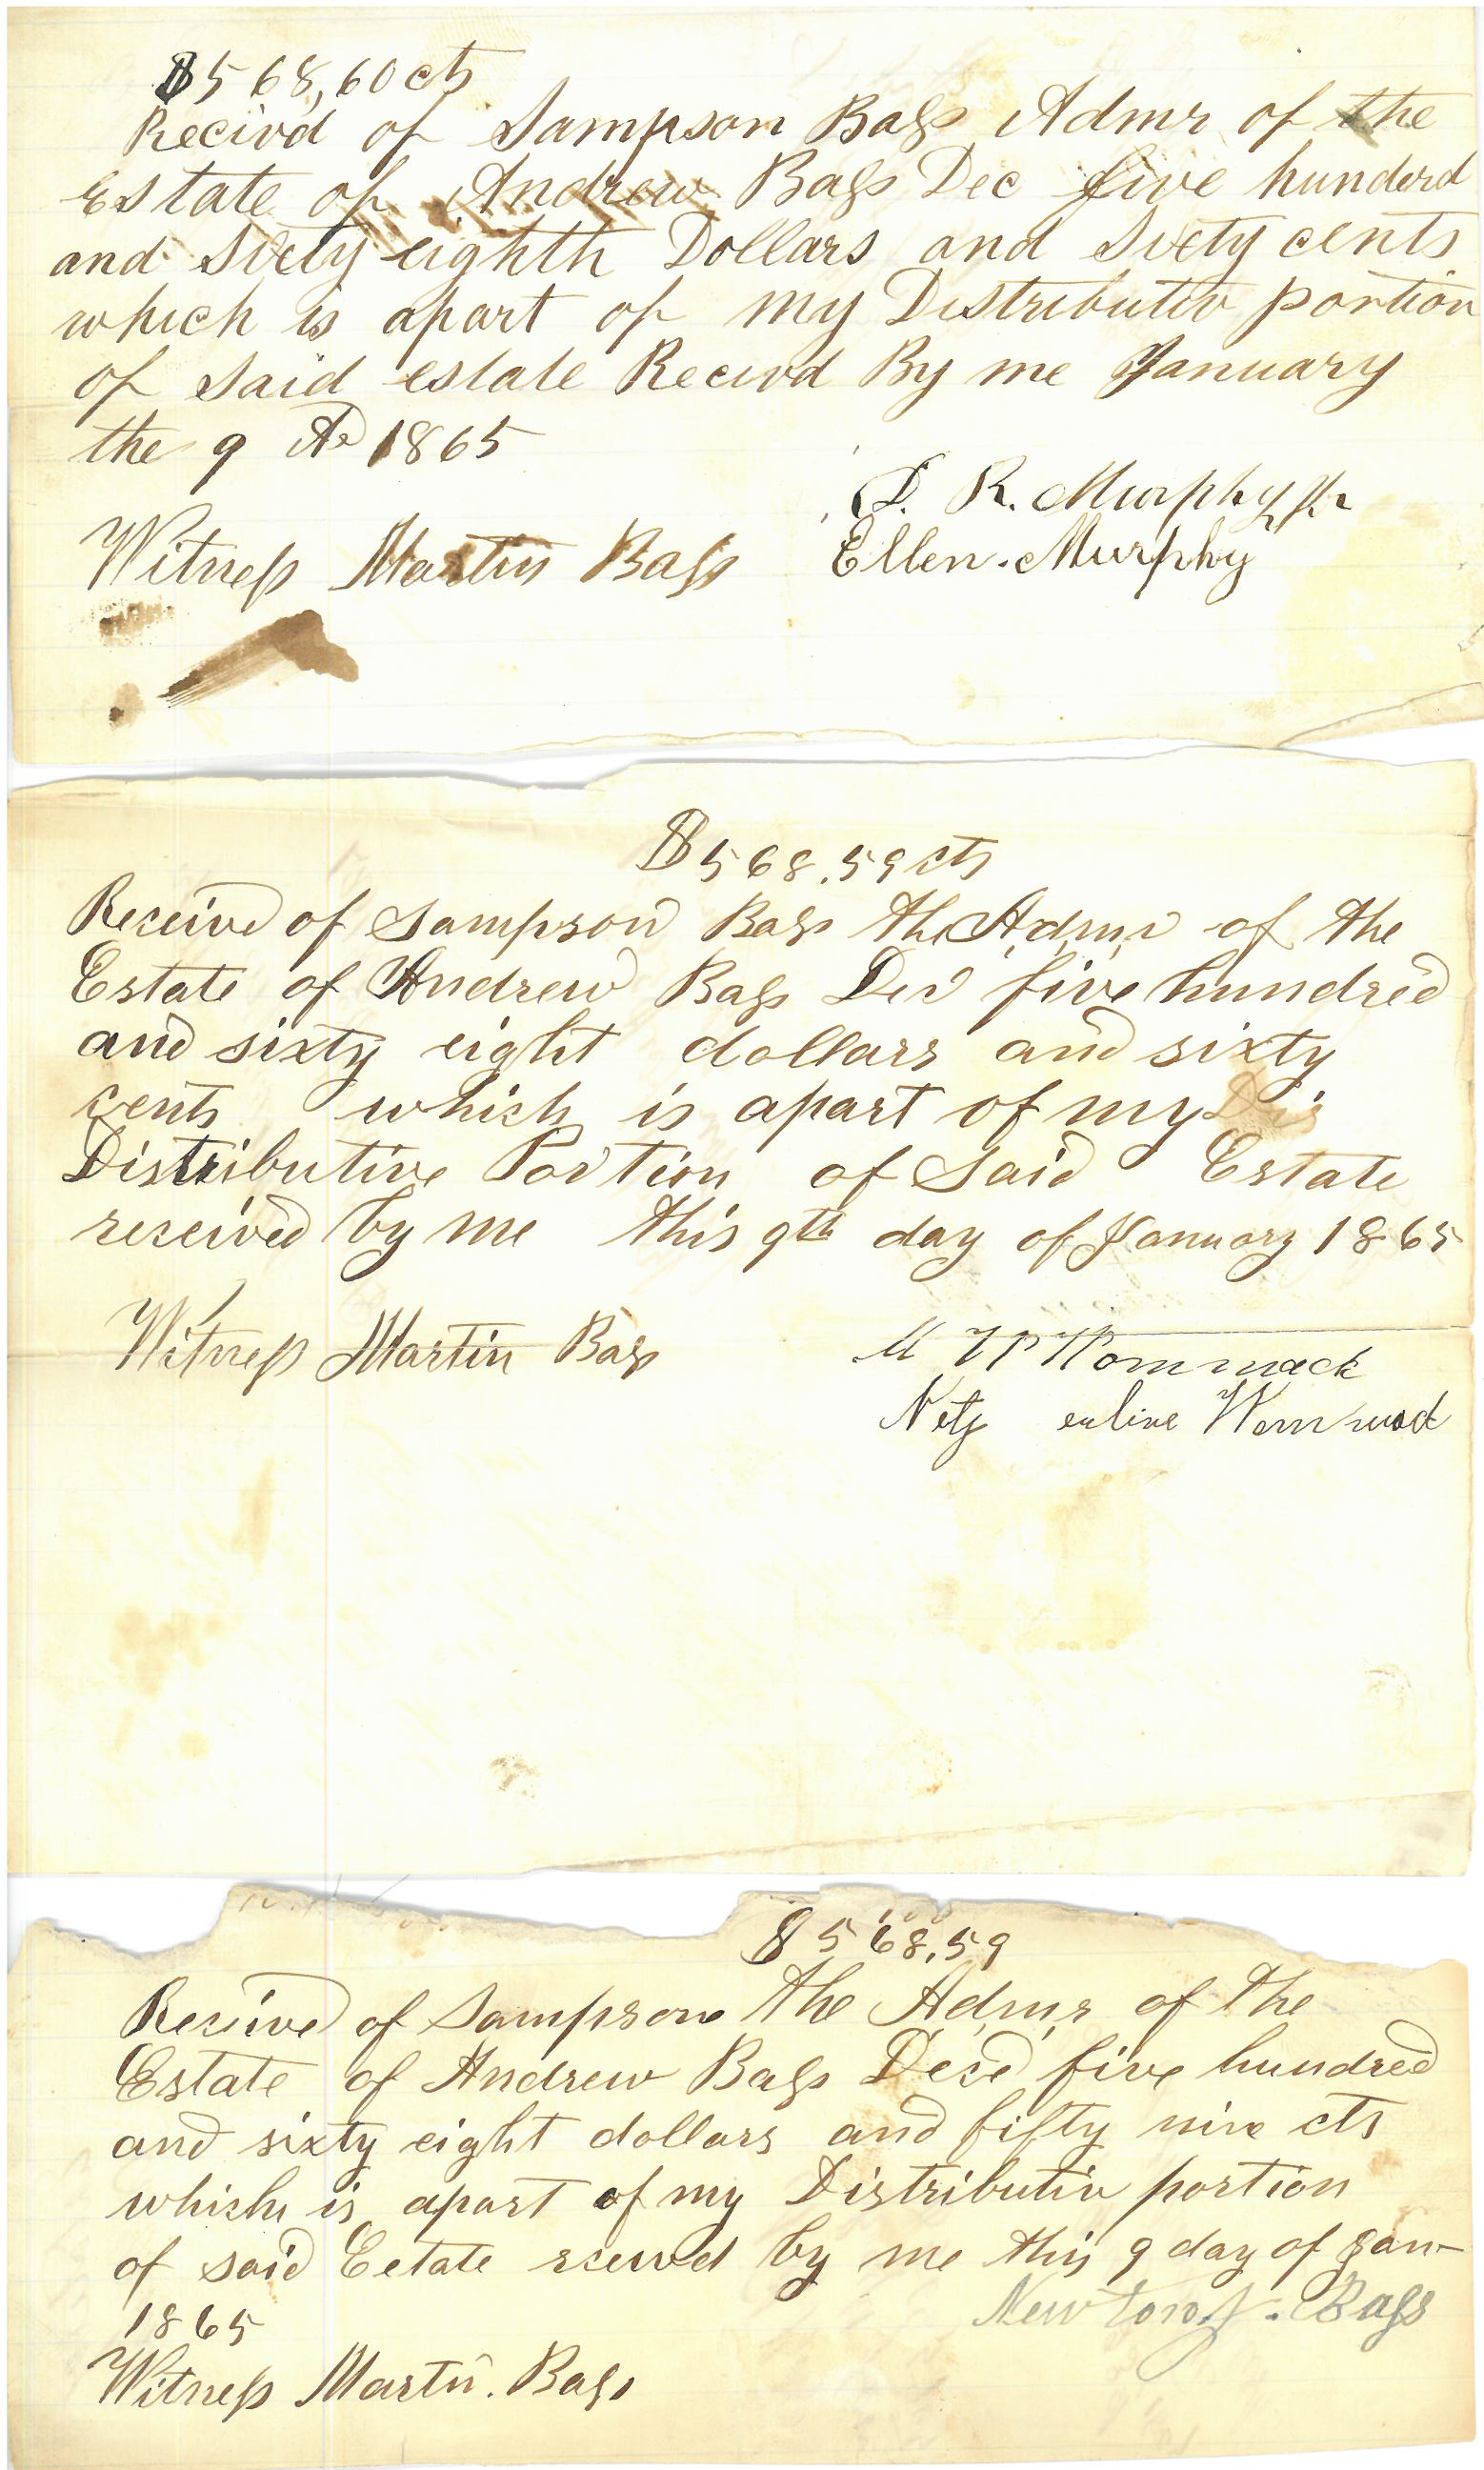 $568,60 cts
Recivd of Sampson Bass Admr of the
Estate of Andrew Bass Dec five hunderd
and Sixty eighth Dollars and Sixty cents
which is apart of my Distributiv portion
of Said estate Recivd By me January
the 9 AD 1865
D. R. Murphy Jr
Witness Martin Bass Ellen Murphy
$568.59 cts
Receivd of Sampson Bass the Admr of the
Estate of Andrew Bass Decd five hundred
and sixty eight dollars and sixty
cents which is apart of my Dis
Distributive Portion of Said Estate
received by me this 9th day of January 1865
Witness Martin Bass M W Wommack
enline
$568.59
Receivd of Sampson the Admr of the
Estate of Andrew Bass Decd five hundred
and sixty eight dollars and fifty nine cts
which is apart of my Distributiv portion
of said Estate recevd by me this 9 day of Jan-
1865 Newton J. Bass
Witness Martin. Bass